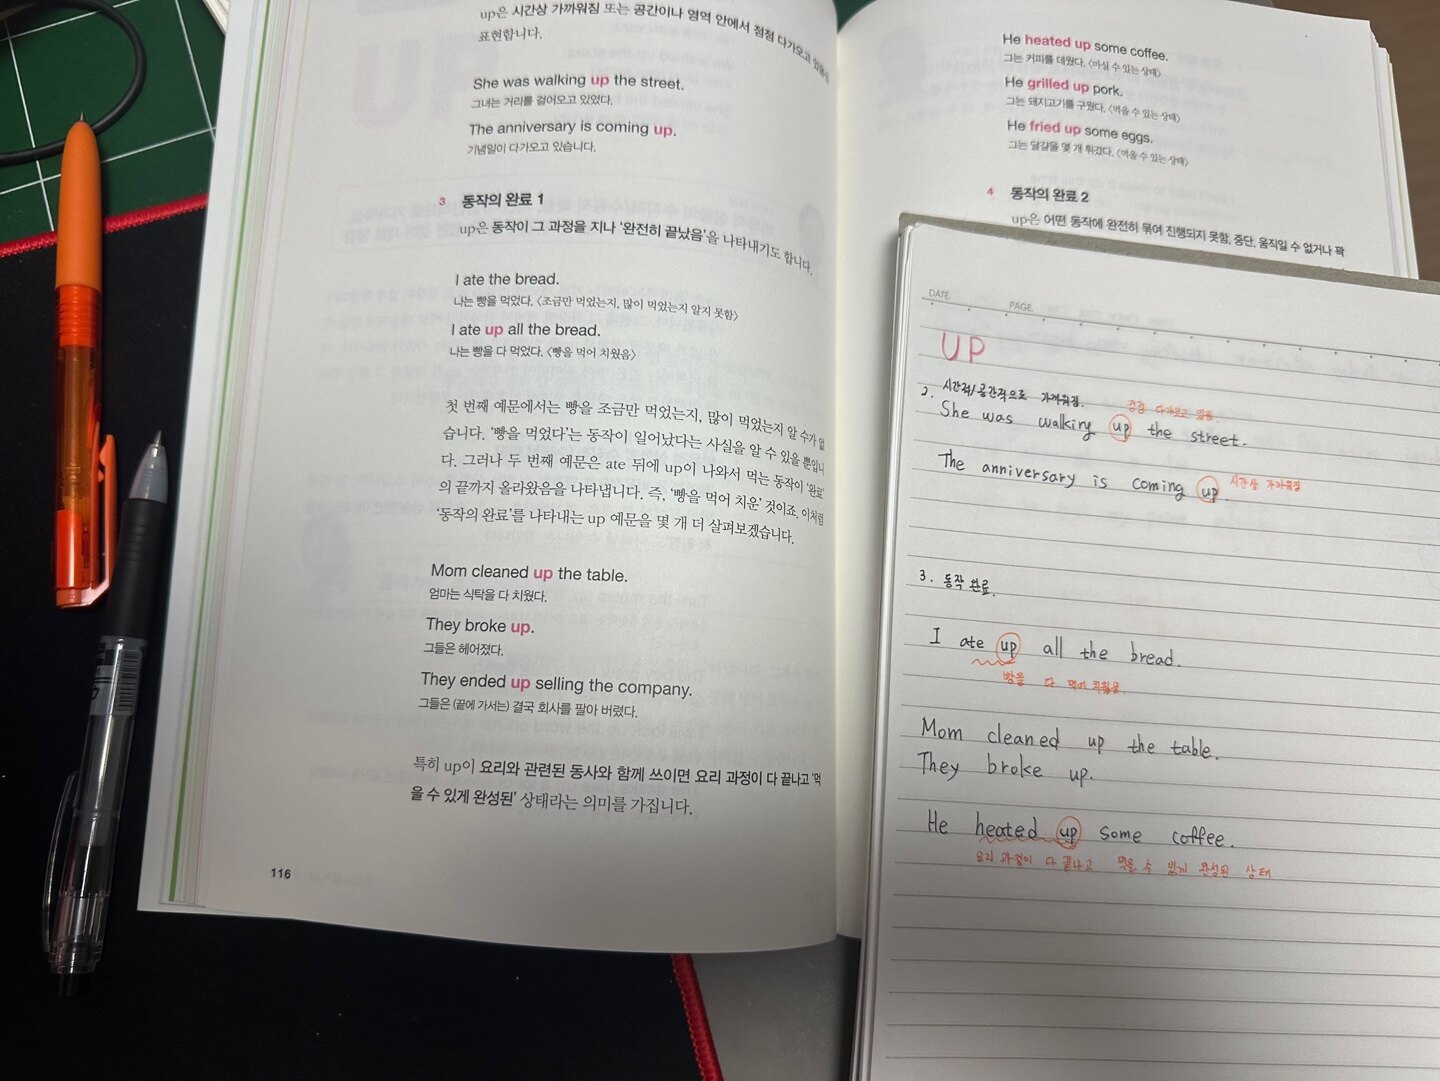 up은 시간상 가까워짐 또는 공간이나 영역 안에서 점점 다가오고 있음을
표현합니다.
She was walking up the street.
그녀는 거리를 걸어오고 있었다.
The anniversary is coming up.
기념일이 다가오고 있습니다.
3 동작의 완료 1
up은 동작이 그 과정을 지나 '완전히 끝났음'을 나타내기도 합니다.
I ate the bread.
나는 빵을 먹었다. 〈조금만 먹었는지, 많이 먹었는지 알지 못함〉
I ate up all the bread.
나는 빵을 다 먹었다. 〈빵을 먹어 치웠음〉
첫 번째 예문에서는 빵을 조금만 먹었는지, 많이 먹었는지 알 수가 없
습니다. '빵을 먹었다'는 동작이 일어났다는 사실을 알 수 있을 뿐입니
다. 그러나 두 번째 예문은 ate 뒤에 up이 나와서 먹는 동작이 '완료'
의 끝까지 올라왔음을 나타냅니다. 즉, '빵을 먹어 치운' 것이죠. 이처럼
'동작의 완료'를 나타내는 up 예문을 몇 개 더 살펴보겠습니다.
Mom cleaned up the table.
엄마는 식탁을 다 치웠다.
They broke up.
그들은 헤어졌다.
They ended up selling the company.
그들은 (끝에 가서는) 결국 회사를 팔아 버렸다.
특히 up이 요리와 관련된 동사와 함께 쓰이면 요리 과정이 다 끝나고 '먹
을 수 있게 완성된' 상태라는 의미를 가집니다.
116
He heated up some coffee.
그는 커피를 데웠다. 〈마실 수 있는 상태〉
He grilled up pork.
그는 돼지고기를 구웠다. 〈먹을 수 있는 상태〉
He fried up some eggs.
그는 달걀을 몇 개 튀겼다. 〈먹을 수 있는 상태〉
4 동작의 완료 2
up은 어떤 동작에 완전히 묶여 진행되지 못함, 중단, 움직일 수 없거나 꽉
DATE. PAGE.
UP
2. 시간적/공간적으로 가까워짐.
점점 다가오고 있음.
She was walking up the street.
The anniversary is coming up 시간상 가까워짐
3. 동작 완료.
I ate up all the bread.
빵을 다 먹어 치웠음.
Mom cleaned up the table.
They broke up.
He heated up some coffee.
요리 과정이 다 끝나고 먹을 수 있게 완성된 상태